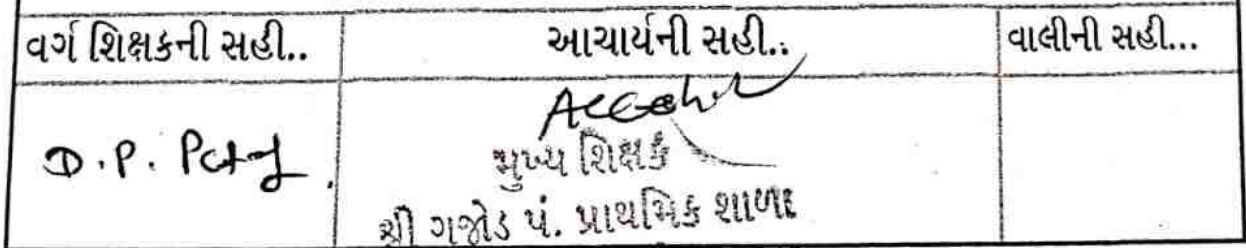 વર્ગ શિક્ષકની સહી.. આચાર્યની સહી.. વાલીની સહી...
D.P.
મુખ્ય શિક્ષક
શ્રી ગજોડ પં. પ્રાથમિક શાળા